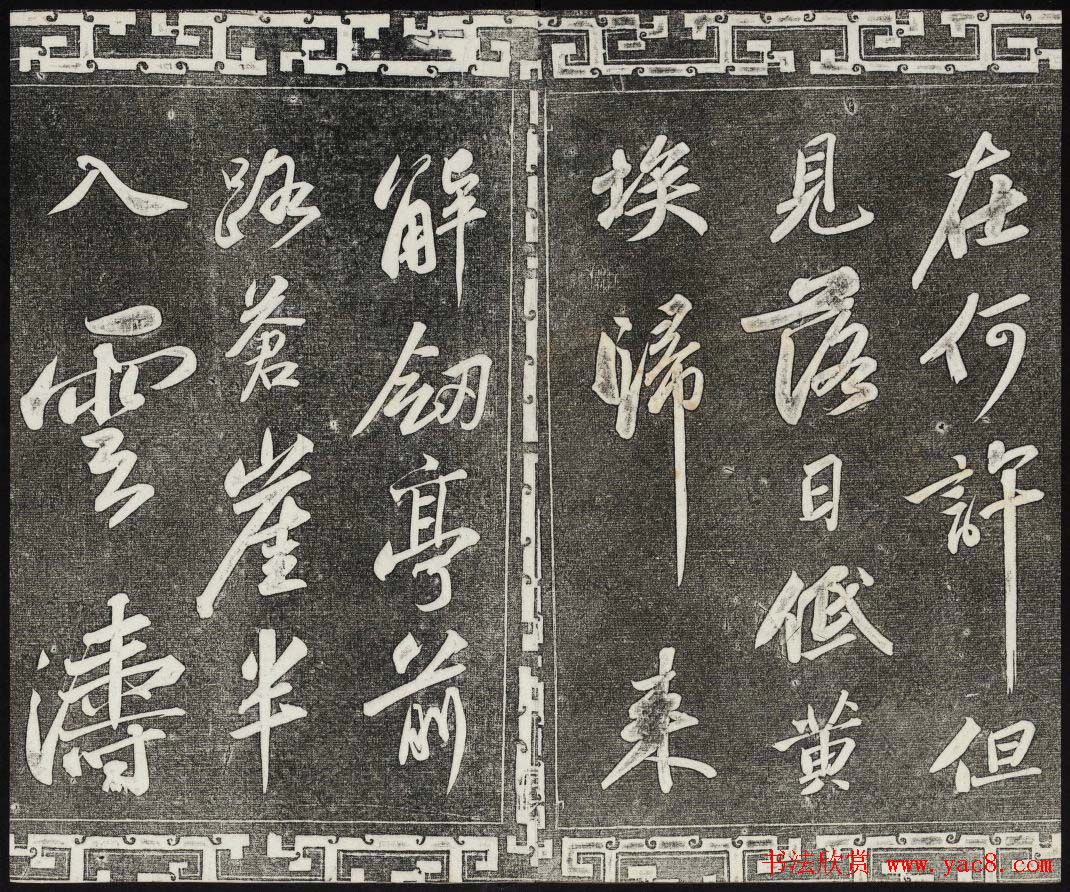 在何許但
見落日低黄
埃歸来
解劔亭前
路蒼崖半
入雲濤
书法欣赏 www.yac8.com